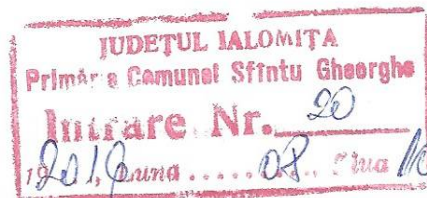 JUDEŢUL IALOMIŢA
Primăr a Comunei Sfîntu Gheorghe
Intrare Nr. 20
Luna ..... 08 Ziua